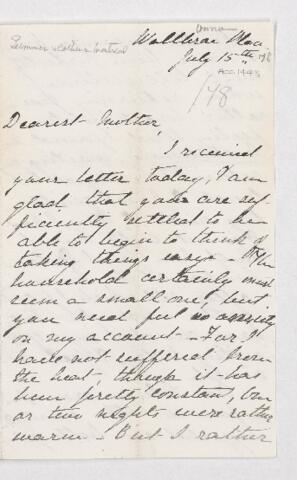 Anna
Summer
July 15th
Acc 1443
/78
Dearest Mother,
I received
your letter today, I am
glad that you are suf-
ficiently settled to be
able to begin to think of
taking things easy - The
household certainly must
seem a small one, but
you need feel no anxiety
on my account - For I
have not suffered from
the heat, though it has
been pretty constant, one
or two nights were rather
warm - But I rather